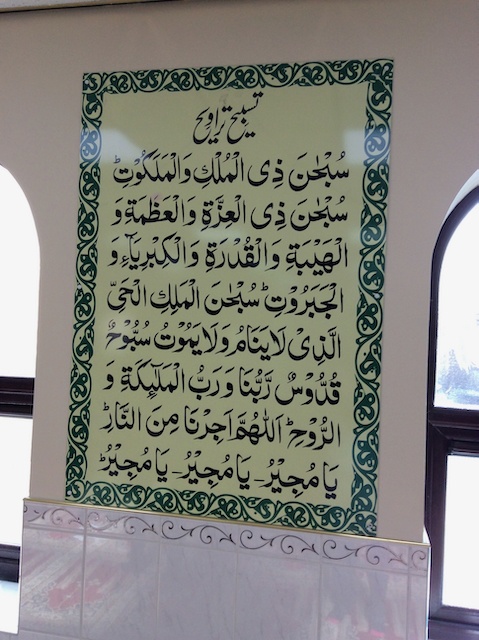 تسبیح تراویح
سُبْحٰنَ ذِی الْمُلْكِ وَالْمَلَكُوْتِؕ
سُبْحٰنَ ذِی الْعِزَّةِ وَالْعَظَمَةِ وَ
الْهَیْبَةِ وَالْقُدْرَةِ وَالْكِبْرِیَآءِ وَ
الْجَبَرُوْتِؕ سُبْحٰنَ الْمَلِكِ الْحَیِّ
الَّذِیْ لَا یَنَامُ وَلَا یَمُوْتُ سُبُّوْحٌ
قُدُّوْسٌ رَّبُّنَا وَرَبُّ الْمَلٰٓئِكَةِ وَ
الرُّوْحِؕ اَللّٰهُمَّ اَجِرْنَا مِنَ النَّارِؕ
یَا مُجِیْرُ۔ یَا مُجِیْرُ۔ یَا مُجِیْرُؕ